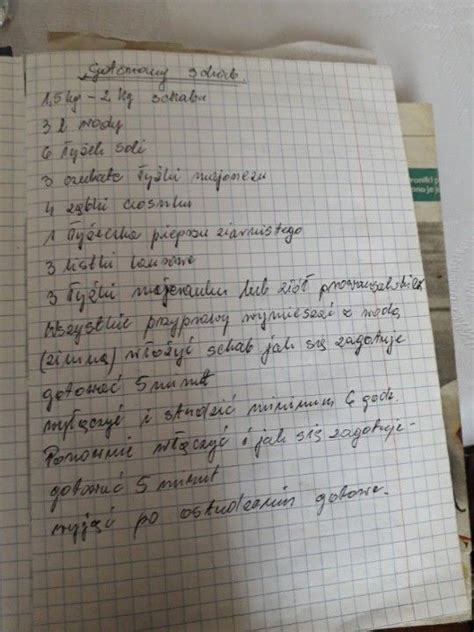 Gotowany schab
1,5 kg - 2 kg schabu
3 l wody
6 łyżek soli
3 czubate łyżki majonezu
4 ząbki czosnku
1 łyżeczka pieprzu ziarnistego
3 listki laurowe
3 łyżki majeranku lub ziół prowansalskich
Wszystkie przyprawy wymieszać z wodą
(zimną) włożyć schab jak się zagotuje
gotować 5 minut
wyłączyć i studzić minimum 6 godz.
Ponownie włączyć i jak się zagotuje -
gotować 5 minut
wyjąć po ostudzeniu gotowe.